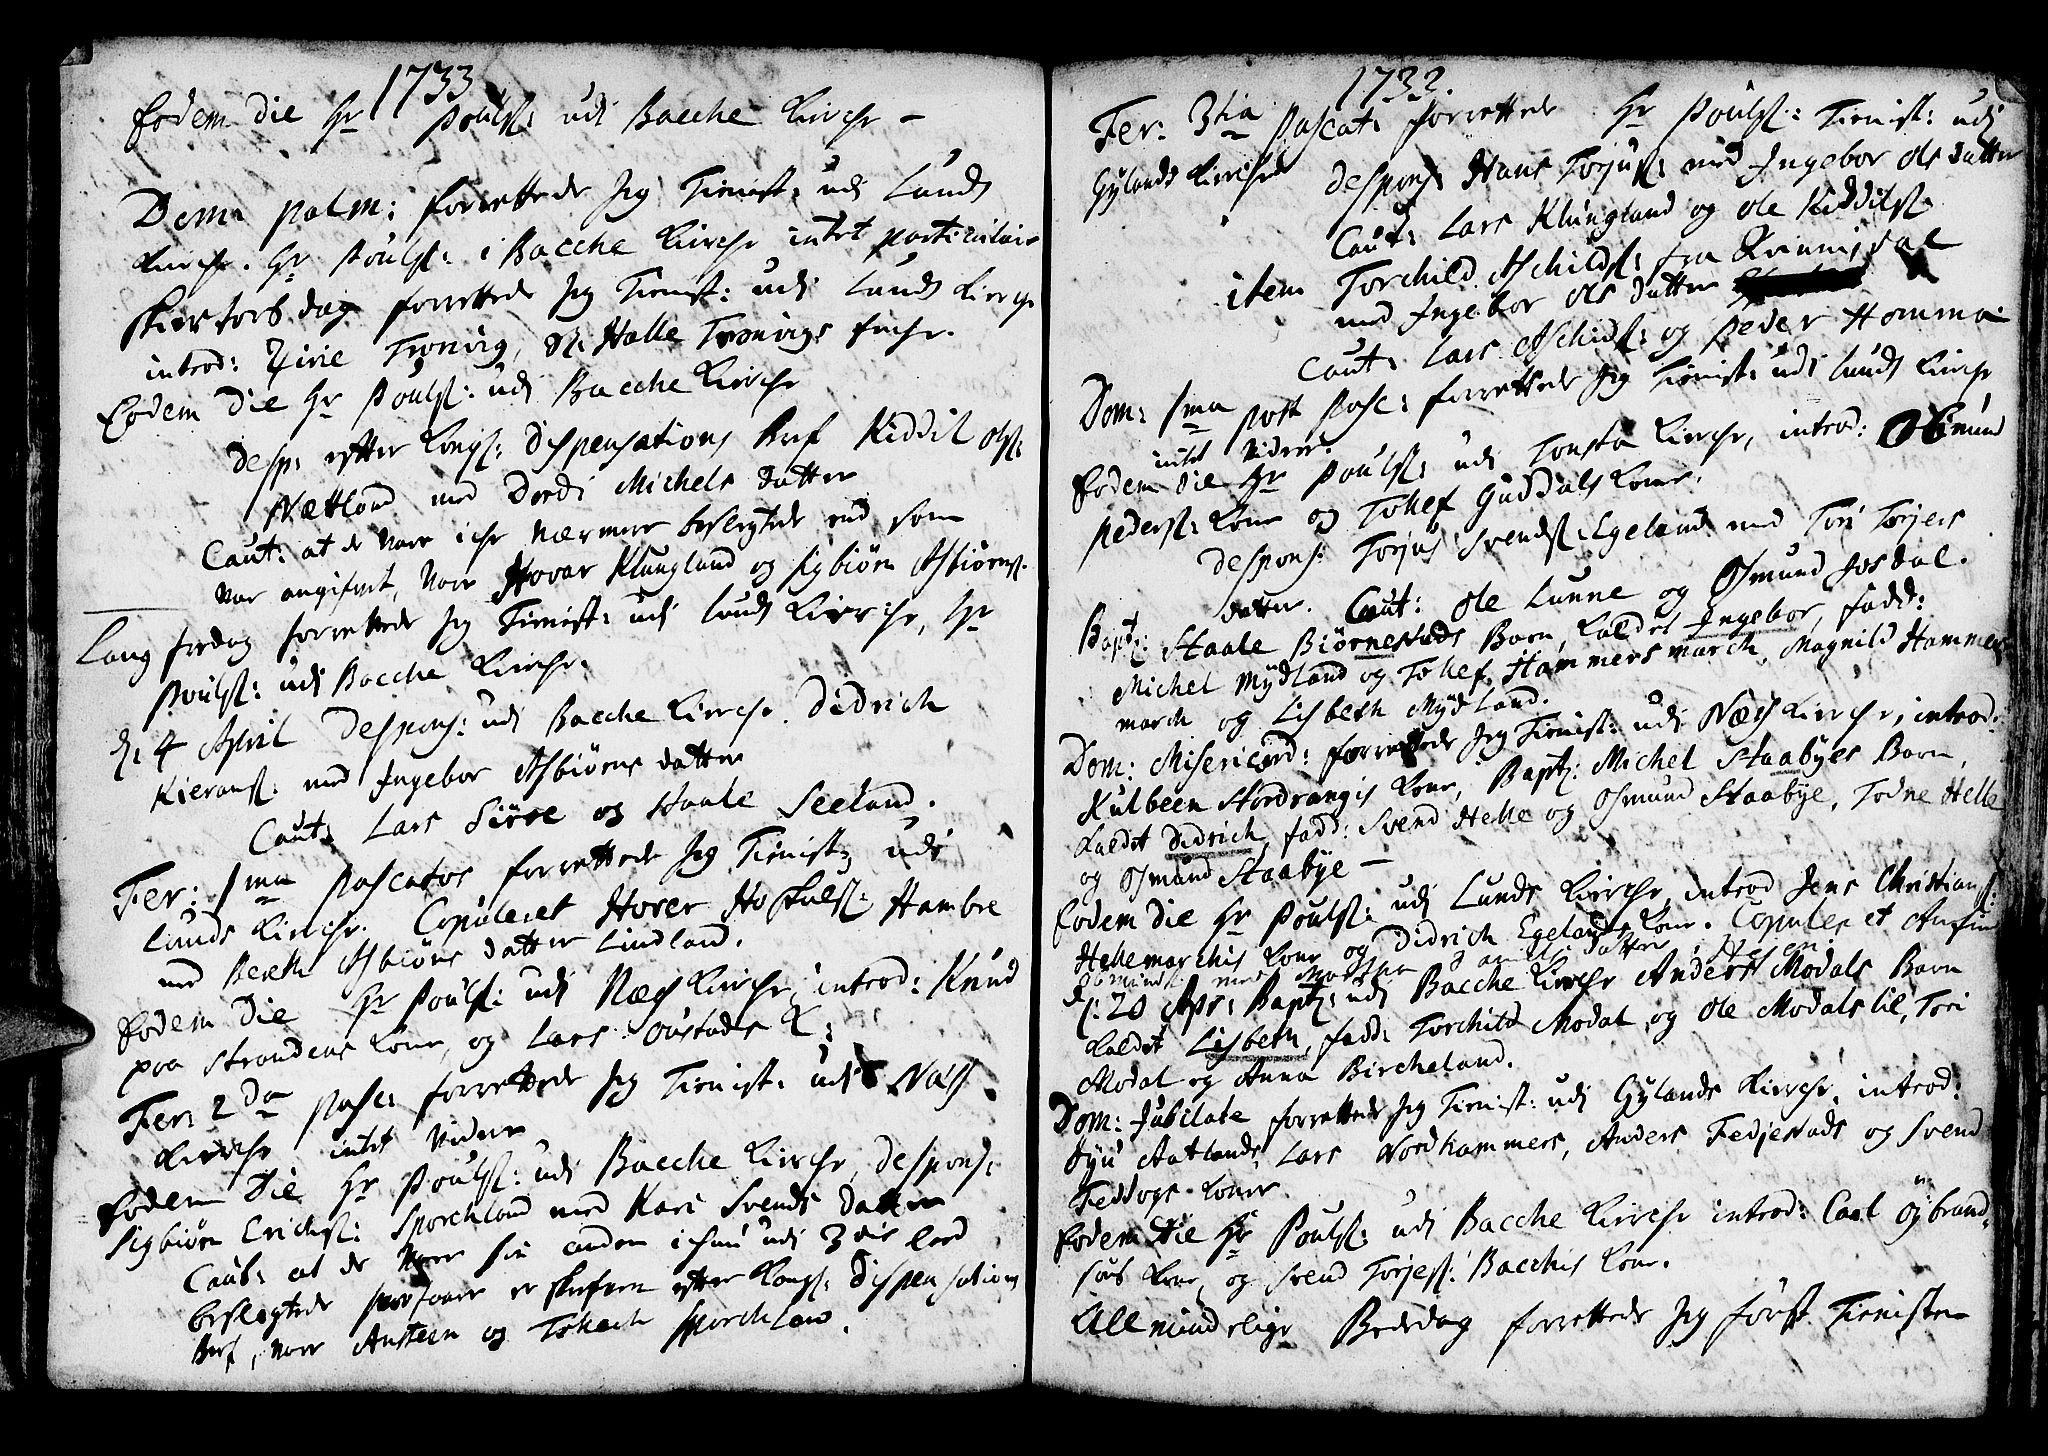 1733
Eodem die Hr Poulss: udi Bacche Kirche –
Dom. palm: forrettede Jeg Tienist: udi Lunds
Kirche. Hr Poulss: i Bacche Kirche intet particulair
Skiertorsdag forrettede Jeg Tienist: udi Lunds Kirche
introd: Zirie Tronvig, N: Halle Tronvigs
Eodem die Hr Poulss: udi Bacche Kirche
desp: efter Kongl: dispensations Bref Kiddil Olss:
Nættland med Dordi Michels datter
Caut: at de vare iche nærmere beslegtede end som
var angifvet, vare Hovar Klungland og Sigbiörn Asbiörnss.
Lang fredag forrettede Jeg Tienist: udi Lunds Kirche, Hr
Poulss: udi Bacche Kirche.
d. 4 April despons: udi Bacche Kirche. Didrich
Kieranss: med Ingebor Asbiörns datter
Caut: Lars Siröe og Staale Seeland.
Fer: 1ma Pascatos forrettede Jeg Tienist: udi
Lunds Kirche. Copuleret Hover Hoskulss: Hambre
med Bereth Asbiörns datter Lindland.
Eodem die Hr Poulss: udi Næss Kirche, introd: Knud
paa Strandens Kone, og Lars Oustads K:
Fer: 2da pasc: forrettede Jeg Tienist: udi Næss
Kirche intet videre
Eodem die Hr Poulss: udi Bacche Kirche, despons:
Sigbiörn Erichss: Sporchland med Kari Svends datter
Caut: at de vare sin anden iche udi 3die leed
beslegtede er skrefven efter Kongl: dispensations
Bref, vare Austen og Tollach Sporchland.
1733.
Fer: 3tia Pascat: forrettede Hr Poulss: Tienist: udi
Gylands Kirche despons: Hans Torjuss: med Ingebor Ols datter
Caut: Lars Klungland og Ole Kiddilss
item Torchild Aschildss: fra Qvinnisdal
med Ingebor Ols datter
Caut: Lars Aschildss: og Peder Homma
Dom: 1ma post Pasc: forrettede Jeg Tienist: udi Lunds Kirche
intet videre.
Eodem die Hr Poulss: udi Tonsta Kirche, introd: Osmund
Pederss: Kone og Tollef Guddals Kone.
despons: Torjus Svendss: Egeland med Tori Torjers
datter. Caut: Ole Lunne og Osmund Josdal.
Bapt: Staale Biörnestads Barn, kaldet Ingebor, fadd:
Michel Mydland og Tollef Hammersmarch, Magnild Hammers
march og Lisbeth Mydland.
Dom: Misericord: forrettede Jeg Tienist: udi Næss Kirche, introd:
Kulbeen Stordrangis Kone, Bapt: Michel Staabyes Barn,
kaldet Didrich, fadd: Svend Helle og Osmund Staabye, Todne Helle
og Osmund Staabye –
Eodem die Hr Poulss: udi Lunds Kirche, introd Jens Christianss:
Hellemarchis Kone og Didrich Egelands Kone. Copuleret Anfind
Osmundss: med Marthe Daniels datter Hesen.
d: 20 Apr: Bapt: udi Bacche Kirche Anders Modals Barn
kaldet Lisbeth, fadd: Torchild Modal, og Ole Modals lie, Tori
Modal og Anna Bircheland.
Dom: Jubilate forrettede Jeg Tienist: udi Gylands Kirche, introd:
Syu Aatlands, Lars Nordhammers, Anders Fedjestads og Svend
Feddogs Koner.
Eodem die Hr Poulss: udi Bacche Kirche introd: Carl Öybrand-
söb Kone, og Svend Torjess: Bacchis Kone.
Allmindelige Bededag forrettede Jeg först Tienisten